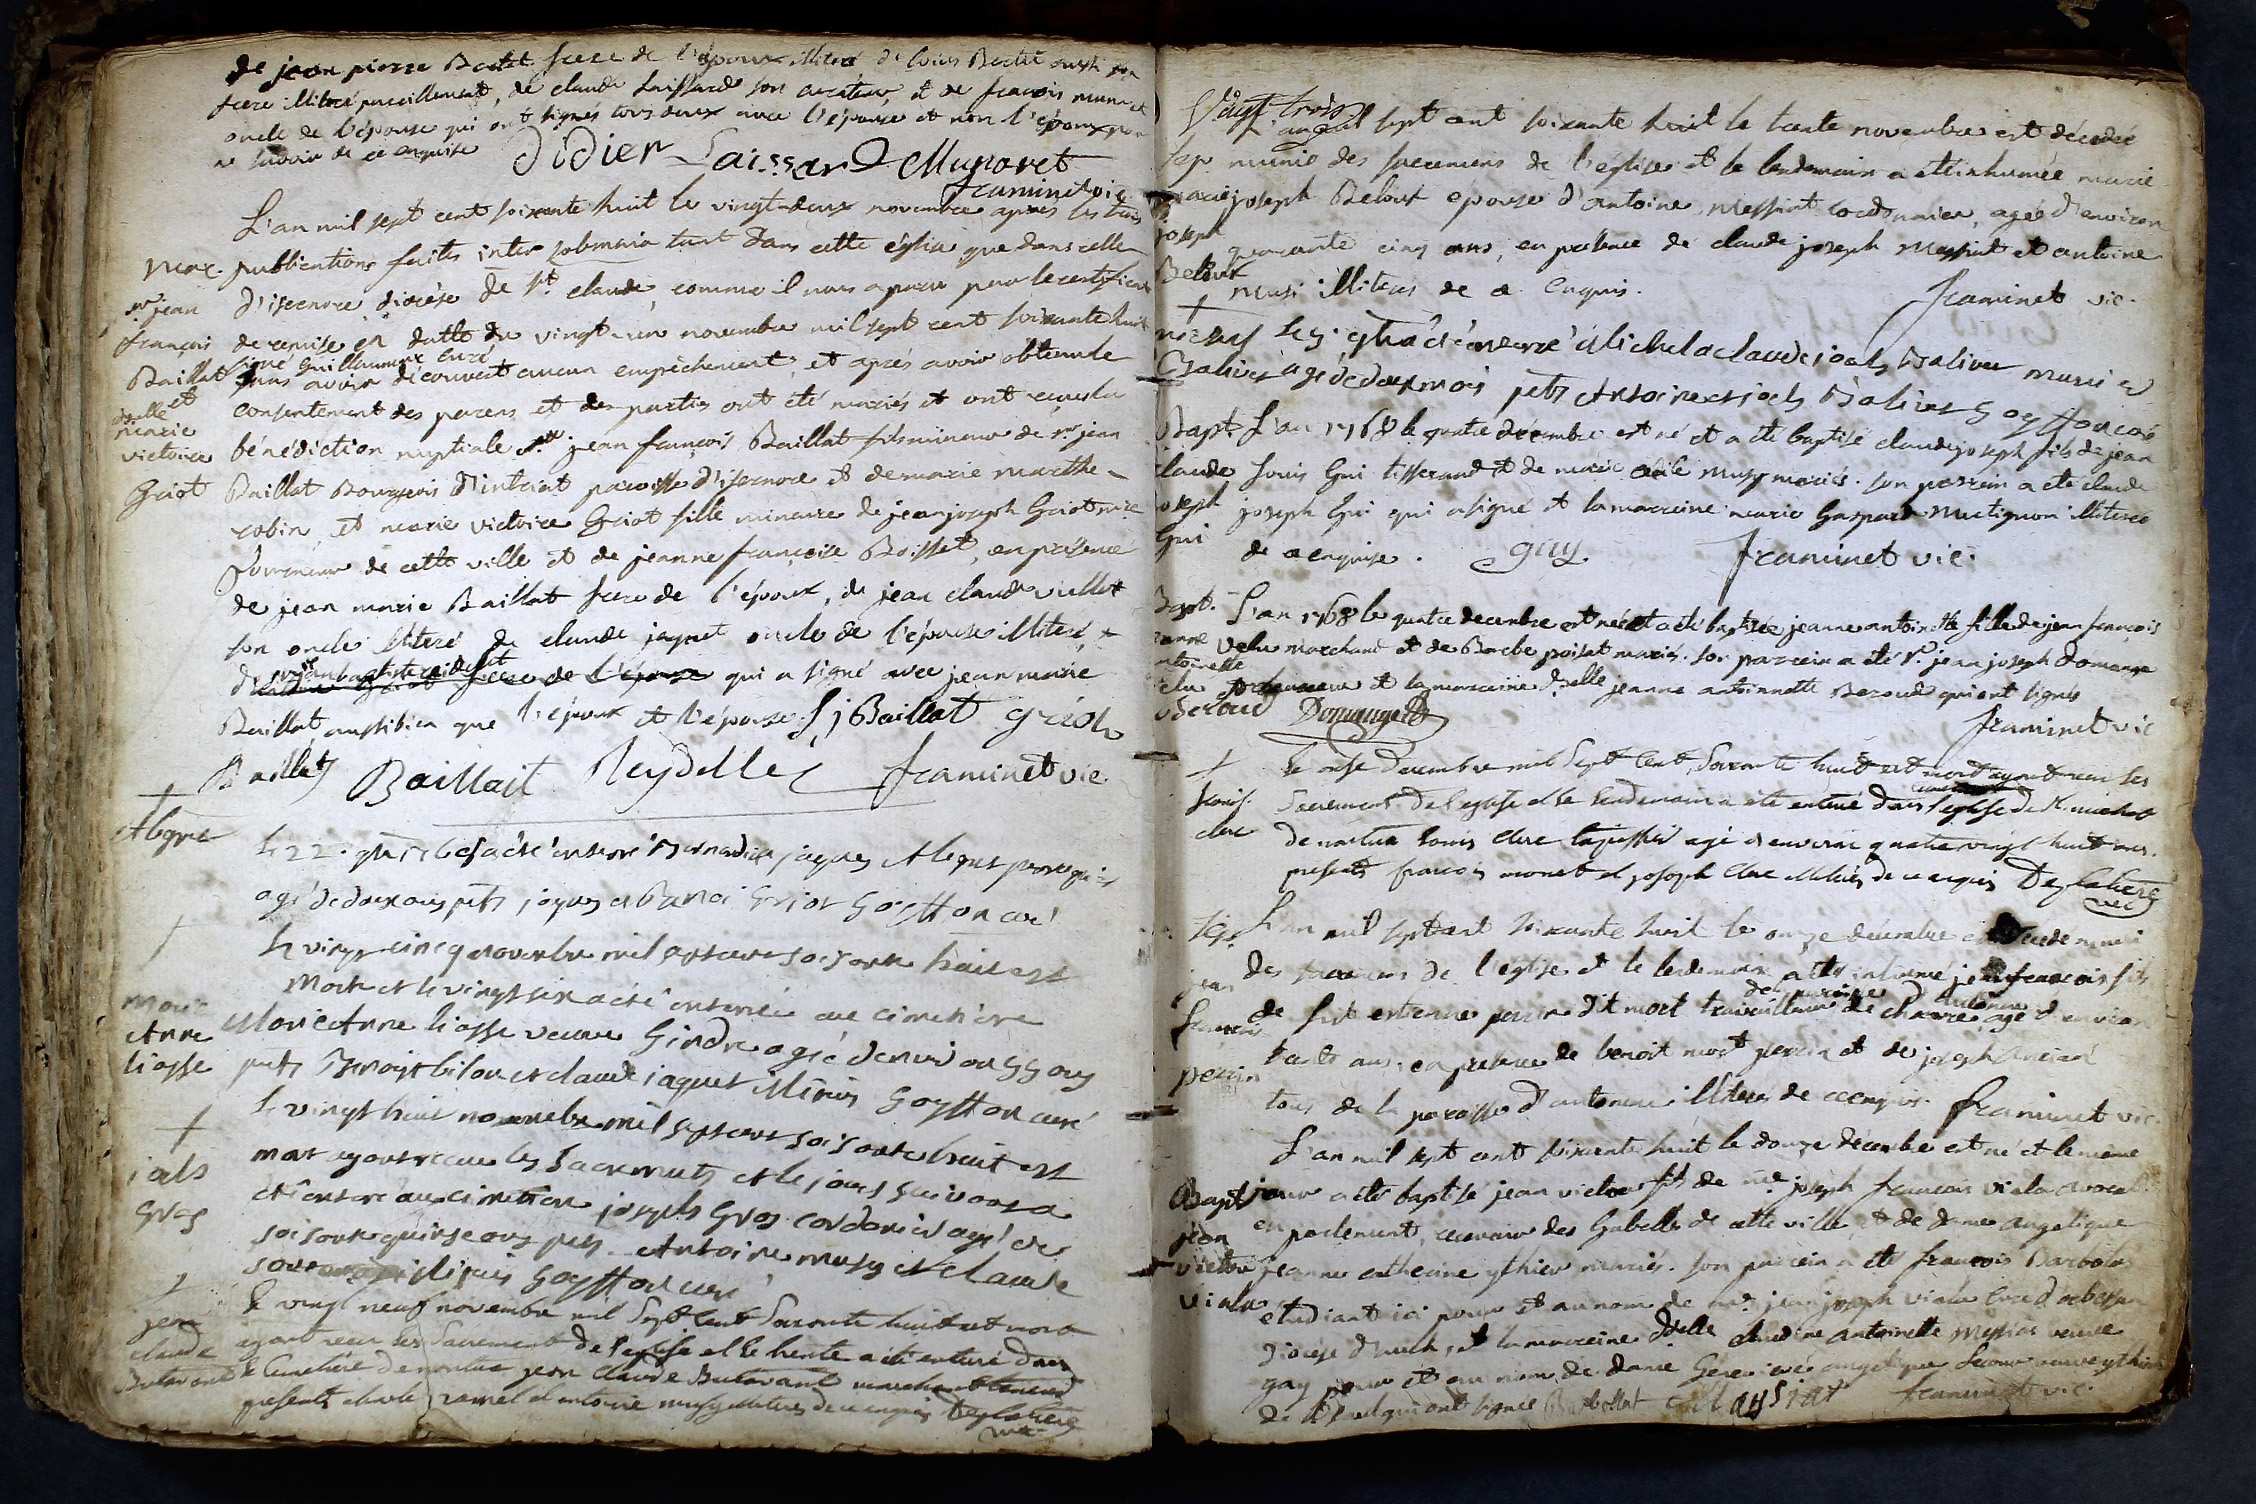 de jean pierre Bertet frere de l'époux illiteré de Louis Bertet aussi son
frere illiteré pareillement, de claude Laissard son curateur, et de francois munaret
oncle de l'épouse qui ont signés tous deux avec l'épouse et non l'époux pour
ne savoir de ce enquise Didier Laissard Munaret
framinet vic
L'an mil sept cent soixante huit le vingt-deux novembre apres les trois
Mar. publications faites inter solemnia tant dans cette église que dans celle
sr jean d'isernore diocése de St. claude, comme il nous a paru par le certificat
françois de remise en datte du vingt-un novembre mil sept cent soixante huit
signé Guillaume curé
Baillat sans avoir découvert aucun empêchement, et aprés avoir obtenu le
et delle consentement des parens et des parties ont été mariés et ont reçus la
marie victoire bénédiction nuptiale sr. jean françois Baillat fils mineur de sr jean
Griot Baillat Bourgeois d'intriat paroisse d'isernore et de marie marthe
robin, et marie victoire Griot fille mineure de jean joseph Griot mre
de cette ville et de jeanne françoise Boisset, en présence
de jean marie Baillat frere de l'époux, de jean claude viellet
son oncle illiteré de claude jaquet oncle de l'épouse illiteré
de frere de l'épouse qui a signé avec jean marie
Baillat aussi bien que l'époux et l'épouse. f j Baillat griot
Baillat Baillait Reydellet framinet vic.
+
Alegre le 22. 9bre 1768 a été enterré Bernardin jaques Alegre
agé de deux ans pnts jaques et Benoi Griot Goyffon curé
+
le vingt cincq novembre mil sept cent soisante huit est
morte et le vingt six a été enterrée au cimetière
Marie Anne liasse Marie Anne liasse veuve Gindre agée denviron 55 ans
pnts Benoist bilon et claude jaquet illitérés Goyffon curé
+
le vingt huit novembre mil sept cent soisante huit est
jols mort ayant receu les Sacrements et le jour suivant a
Gros été enterré au cimetière joseph Gros cordonier agé de
soisante quinse ans pnts Antoine musy et claude
illiterés Goyffon curé
+
jean Le vingt neuf novembre mil Sept Cent Soixante huit est mort
claude ayant receu les Sacrements de l'eglise et le trente a été enterré dans
Butavant le Cimetière de nantua jean Claude Butavant marchand
presents charle ramel et antoine musy illiterés de ce enquis Deglatiere
vic
Vingt trois
L'an mil sept cent soixante huit le trente novembre est décedée
Sep. munie des sacremens de l'église et le lendemain a été inhumée marie
marie joseph Belour epouse d'antoine Messiat cordonnier, agée d'environ
joseph quarante cinq ans, en présence de claude joseph Messiat et antoine
Belour Musi illiterés de ce enquis. framinet vic.
+
le 3. xbre a été enterré Michel claude jols Balivet
Balivet agé de deux mois pnts Antoine et jols Balivet Goyffon curé
Bapt. L'an 1768 le quatre décembre est né et a été baptisé claude joseph fils de jean
claude Louis Gui tisserand et de marie cécile musy mariés. son parrein a été claude
joseph joseph Gui qui a signé et la marreine marie Gaspard Metignon illiterée
Gui de ce enquise. guy framinet vic.
Bapt. L'an 1768 le quatre decembre est née et a été baptisée jeanne antoinette fille de jean françois
jeanne velu marchand et de Barbe poisat mariés. son parrein a été sr. jean joseph Domange
antoinette
velu et la marreine delle jeanne antoinette Beroud qui ont signés
Beroud Domange framinet vic
+ Le onse Decembre mil Sept Cent Soixante huit est mort ayant receu les
Louis Sacrements de l'eglise et le lendemain a été enterré dans l'eglise de St. michel
clerc de nantua Louis clerc tapissier agé d'environ quatre vingt huit ans.
presents francois monet et joseph Clerc illiterés de ce enquis Deglatiere
vic
Sep. L'an mil sept cent soixante huit le onze décembre est décédé muni
des sacremens de l'église et le lendemain a été inhumé jean françois fils
jean de feu estienne perrin dit mort travailleur de la paroisse d'antonne agé d'environ
françois trente ans, en présence de benoit mort perrin et de joseph
perrin tous de la paroisse d'antonne illiterés de ce enquis. framinet vic.
L'an mil sept cent soixante huit le douze décembre est né et le même
Bapt jour a été baptisé jean victor fils de me joseph francois viala avocat
jean en parlement, receveur des Gabelles de cette ville et de dame angelique
victor jeanne catherine ythier mariés. son parrein a été francois Barbolat
viala étudiant ici pour et au nom de mre. jean joseph viala curé d'
diocése d'auch, et la marreine delle claudine antoinette Messiat veuve
gay pour et au nom de dame Génévieve angelique veuve ythier
de qui ont signés Barbollat framinet vic.